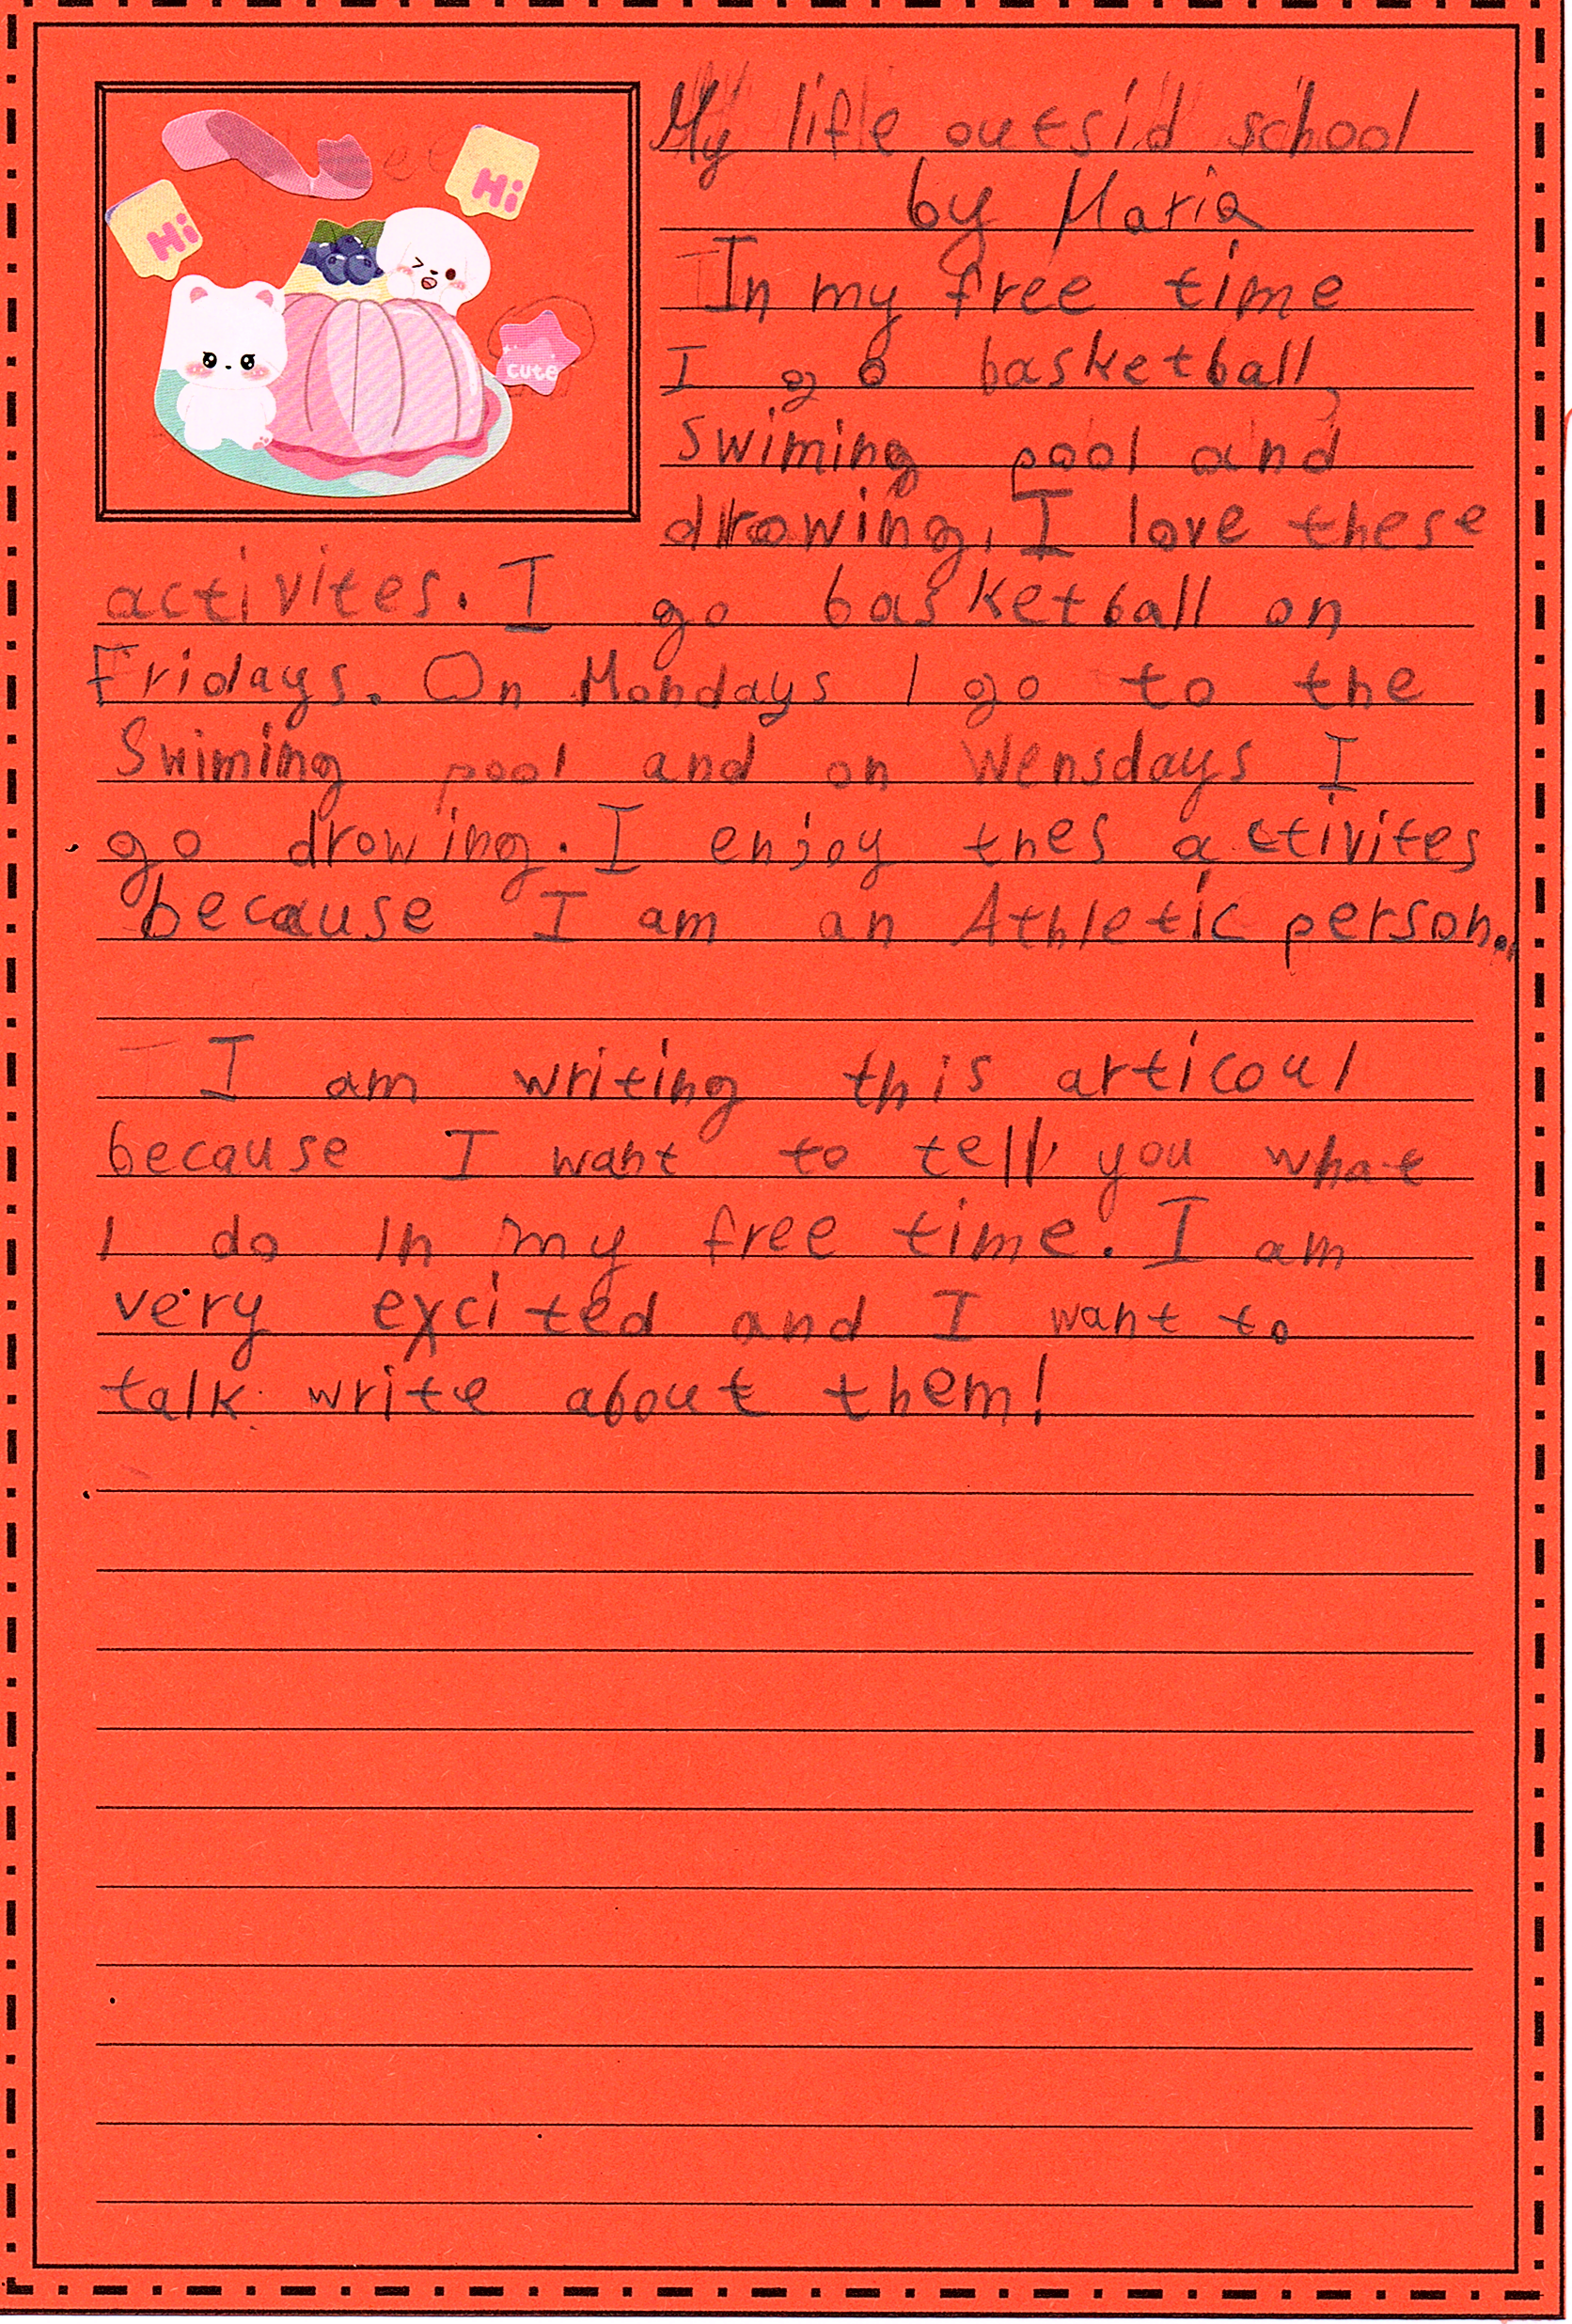 My life outsid school
by Maria
In my free time
I go basketball,
swiming pool and
drowing. I love these
activites. I go basketball on
Fridays. On Mondays I go to the
Swiming pool and on Wensdays I
go drowing. I enjoy thes activites
because I am an Athletic person.
I am writing this articoul
because I want to tell you what
I do in my free time. I am
very excited and I want to
talk write about them!
Hi
Hi
cute